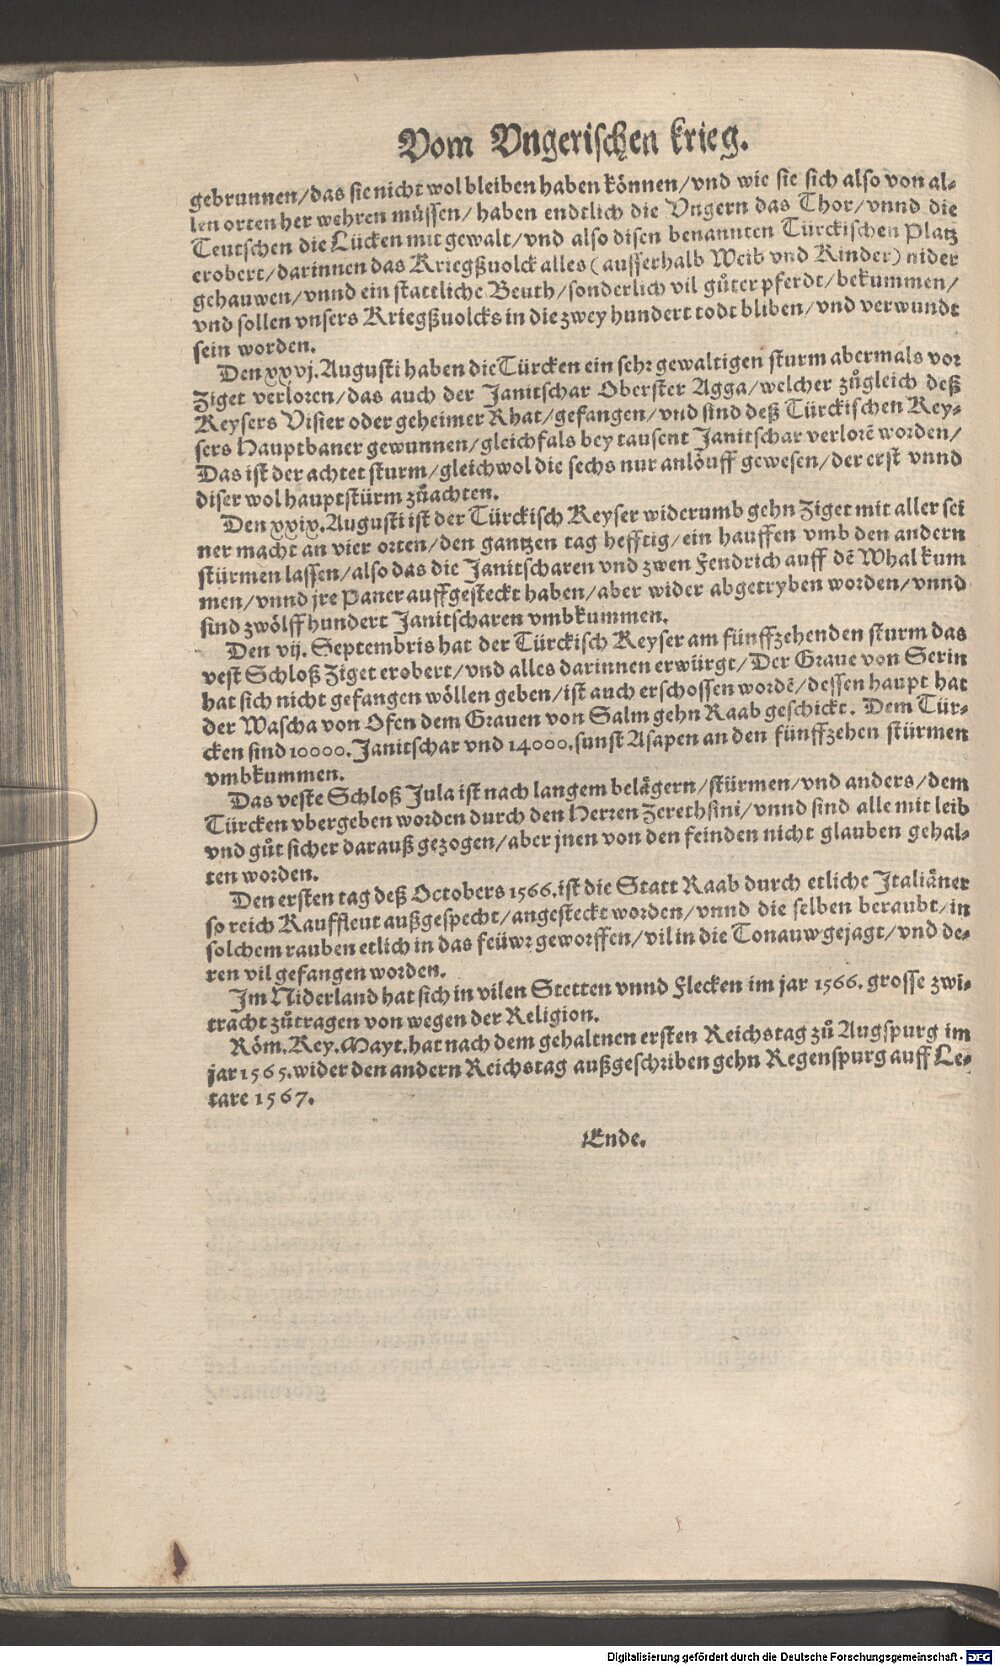 Vom Vngerischen krieg.
gebrunnen/das sie nicht wol bleiben haben können/vnd wie sie sich also von al-
len orten her wehren müssen/ haben endtlich die Vngern das Thor/vnnd die
Teutschen die Lücken mit gewalt/vnd also disen benannten Türckischen Platz
erobert/darinnen das Kriegßuolck alles (ausserhalb Weib vnd Kinder) nider
gehauwen/vnnd ein stattliche Beuth/sonderlich vil gůter pferdt/bekummen/
vnd sollen vnsers Kriegßuolcks in die zwey hundert todt bliben/vnd verwundt
sein worden.
Den xxvj. Augusti haben die Türcken ein sehr gewaltigen sturm abermals vor
Ziget verloren/das auch der Janitschar Oberster Agga/welcher zůgleich deß
Keysers Visier oder geheimer Rhat/gefangen/vnd sind deß Türckischen Key-
sers Hauptbaner gewunnen/gleichfals bey tausent Janitschar verlorẽ worden/
Das ist der achtet sturm/gleichwol die sechs nur anlöuff gewesen/der erst vnnd
diser wol hauptstürm zůachten.
Den xxix. Augusti ist der Türckisch Keyser widerumb gehn Ziget mit aller sei
ner macht an vier orten/den gantzen tag hefftig/ein hauffen vmb den andern
stürmen lassen/also das die Janitscharen vnd zwen Fendrich auff dẽ Whal kum
men/vnnd jre Paner auffgesteckt haben/aber wider abgetryben worden/vnnd
sind zwölff hundert Janitscharen vmbkummen.
Den vij. Septembris hat der Türckisch Keyser am fünffzehenden sturm das
vest Schloß Ziget erobert/vnd alles darinnen erwürgt/Der Graue von Serin
hat sich nicht gefangen wöllen geben/ist auch erschossen wordẽ/dessen haupt hat
der Wascha von Ofen dem Grauen von Salm gehn Raab geschickt. Dem Tür-
cken sind 10000. Janitschar vnd 14000. sunst Asapen an den fünffzehen stürmen
vmbkummen.
Das veste Schloß Jula ist nach langem belägern/stürmen/vnd anders/dem
Türcken vbergeben worden durch den Herren Zerethsini/vnnd sind alle mit leib
vnd gůt sicher darauß gezogen/aber jnen von den feinden nicht glauben gehal-
ten worden.
Den ersten tag deß Octobers 1566. ist die Statt Raab durch etliche Italiäner
so reich Kauffleut außgespecht/angesteckt worden/vnnd die selben beraubt/in
solchem rauben etlich in das feüwr geworffen/vil in die Tonauw gejagt/vnd de-
ren vil gefangen worden.
Im Niderland hat sich in vilen Stetten vnnd Flecken im jar 1566. grosse zwi-
tracht zůtragen von wegen der Religion.
Röm. Key. Mayt. hat nach dem gehaltnen ersten Reichstag zů Augspurg im
jar 1565. wider den andern Reichstag außgeschriben gehn Regenspurg auff Le-
tare 1567.
Ende.
Digitalisierung gefördert durch die Deutsche Forschungsgemeinschaft - DFG